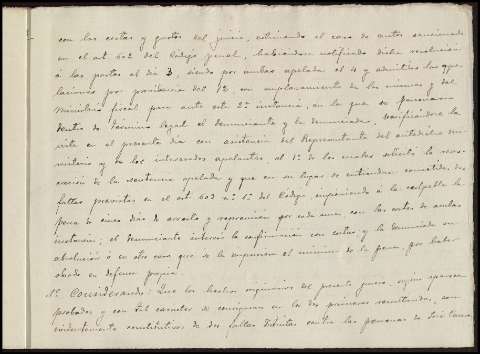 con las costas y gastos del juicio, estimando el caso de autos sancionado
en el art. 602 del Código penal, habiéndose notificado dicha resolución
á las partes el día 3, siendo por ambas apelada el 4 y admitidas las ape
laciones por providencia del 12 con emplazamiento de las mismas y del
Ministerio fiscal para ante esta 2ª instancia, en la que se personaron
dentro de término legal el denunciante y la denunciada, verificándose la
vista en el presente día con asistencia del Representante del
y de los interesados apelantes, el 1º de los cuales solicitó la revo
cación de la sentencia apelada y que en su lugar se entiendan cometidas, dos
faltas previstas en el art. 603 nº 1º del Código imponiendo á la culpable la
pena de cinco días de arresto y reprensión por cada una, con las costas de ambas
instancias; el denunciante interesó la confirmación con costas y la denunciada su
absolución ó en otro caso que se la impusiera el mínimo de la pena, por haber
obrado en defensa propia.
1º Considerando: Que los hechos originarios del presente juicio, según aparecen
probados y con tal caracter se consignan en los dos primeros resultandos, son
evidentemente constitutivos de dos faltas distintas contra las personas de